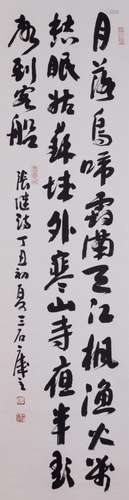 月落烏啼霜滿天江楓漁火對
愁眠姑蘇城外寒山寺夜半鐘
聲到客船
張繼詩丁丑初夏三石